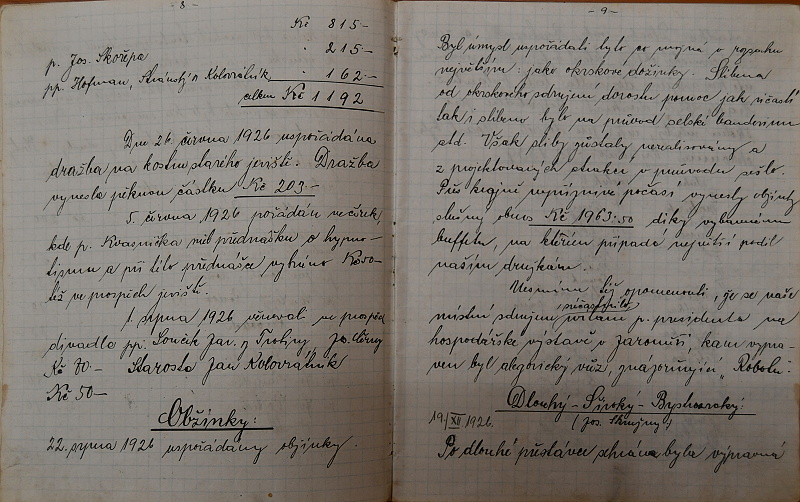 - 8 -
Kč 815-
p. Jos. Skořepa " 215-
pp. Hofman, Stránský a Kolovrátník " 162-
celkem Kč 1192
Dne 26. června 1926 uspořádána
dražba na kostru starého jeviště. Dražba
vynesla pěknou částku Kč 203-
5. června 1926 pořádán večírek,
kde p. Kvasnička měl přednášku o hypno-
tismu a při této přednášce vybráno Kč 50-
též ve prospěch jeviště.
1. srpna 1926 věnovali ve prospěch
divadla pp. Souček Jan. z Trotiny, Jos. Černý
Kč 70- Starosta Jan Kolovrátník
Kč 50-
Obžínky:
22. srpna 1926 uspořádány obžínky.
- 9 -
Byl úmysl uspořádati bylo co možná v rozsahu
největším: jako okrskové dožínky. Slíbena
od okrskového sdružení dorostu pomoc jak účastí
tak i slíbeno bylo na průvod selské banderium
atd. Však sliby zůstaly nerealisovány a
z projektovaných stran v průvodu sešlo.
Přes krajně nepříznivé počasí vynesly obžínky
slušný obnos Kč 1963·50 díky vybranému
buffetu, na kterém připadá největší podíl
našim družkám.
Nesmím též opomenouti, že se naše
místní sdružení súčastnilo vítání p. presidenta na
hospodářské výstavě v Jaroměři, kam vypra-
ven byl alegorický vůz, znázorňující "Robotu".
Dlouhý - Široký - Bystrozraký:
19/XII 1926. (Jos. Štrunjný)
Po dlouhé přestávce sehrána byla výpravná